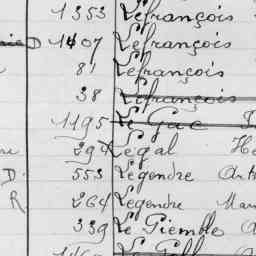 1353 Lefrançois
D 1407 Lefrançois
81 Lefrançois
38 Lefrancois
1195 Le Guc
294 Legal He
D. 553 Legendre Art
R 264 Legendre Mar
339 Le Piemble